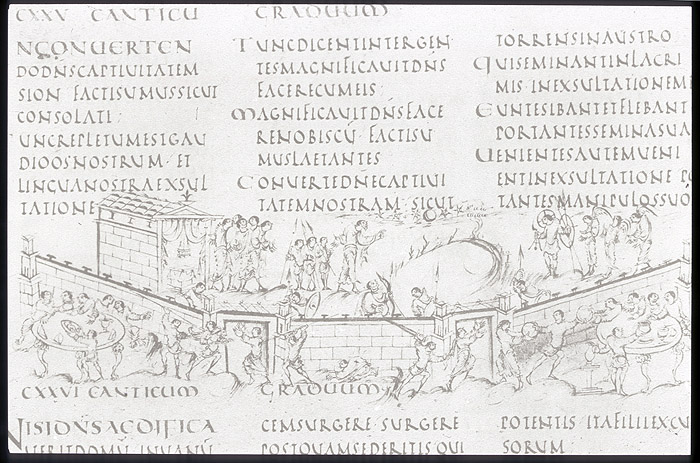 CXXV CANTICU GRADUUM
NCONUERTEN
DODNSCAPTIUITATEM
SION FACTISUMUSSICUT
CONSOLATI
UNCREPLETUMESTGAU
DIOOSNOSTRUM ET
LINGUANOSTRAEXSUL
TATIONE
TUNCDICENTINTERGEN
TESMAGNIFICAUITDNS
FACERECUMEIS
MAGNIFICAUITDNSFACE
RENOBISCU FACTISU
MUSLAETANTES
CONUERTEDNECAPTIUI
TATEMNOSTRAM SICUT
TORRENSINAUSTRO
QUISEMINANTINLACRI
MIS INEXSULTATIONEM
EUNTESIBANTETFLEBANT
PORTANTESSEMINASUA
UENIENTESAUTEMUENI
ENTINEXSULTATIONE PO
TANTESMANIPULOSSUO
CXXVI CANTICUM GRADUUM
NISIDNSAEDIFICA
UERITDOMU INUANU
CEMSURGERE SURGERE
POSTQUAMSEDERITISQUI
POTENTIS ITAFILIIEXCU
SORUM